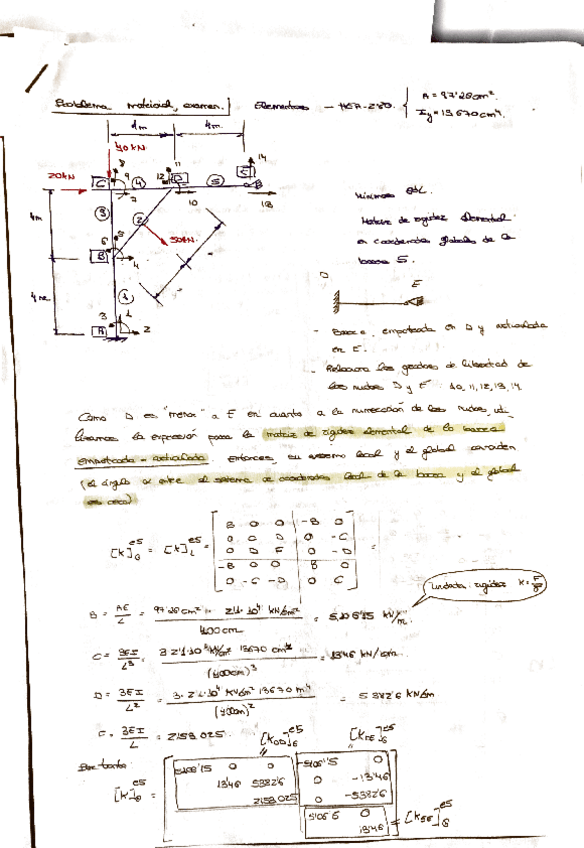 Problema matricial, examen.
Elementos - HEA-280.
A = 97'26 cm².
Iy = 13670 cm⁴.
4m
4m
40kN
20kN
8
9
C
4
7
11
12
D
10
5
E
14
13
3
2
4m
50kN
6
5
B
4
1
4m
3
A
1
2
Mínimos GdL.
Matriz de rigidez elemental
en coordenadas globales de la
barra 5.
D
E
- Barra empotrada en D y articulada
en E.
- Relaciona los grados de libertad de
los nudos D y E: 10, 11, 12, 13, 14
Como D es "menor" a E en cuanto a la numeración de los nudos, uti-
lizamos la expresión para la matriz de rigidez elemental de la barra
empotrada - articulada. Entonces, su sistema local y el global coinciden
(el ángulo α entre el sistema de coordenadas local de la barra y el global
es cero)
[K]G e5 = [K]L e5 =
B 0 0 -B 0
0 C D 0 -C
0 D F 0 -D
-B 0 0 B 0
0 -C -D 0 C
=
Unidades rigidez K =
B = AE/L = 97'26 cm² · 2'1·10⁴ kN/cm² / 400cm = 5106'15 kN/m.
C = 3EI/L³ = 3·2'1·10⁴ kN/cm² 13670 cm⁴ / (400cm)³ = 13'46 kN/cm.
D = 3EI/L² = 3·2'1·10⁴ kN/cm² 13670 m⁴ / (400cm)² = 5382'6 kN/cm
F = 3EI/L = 2153025.
[KDD]G e5
[KDE]G e5
Por tanto:
[K]G e5 =
5106'15 0 0 -5106'15 0
13'46 5382'6 0 -13'46
2153025 0 -5382'6
5106'15 0
13'46
= [KEE]G e5